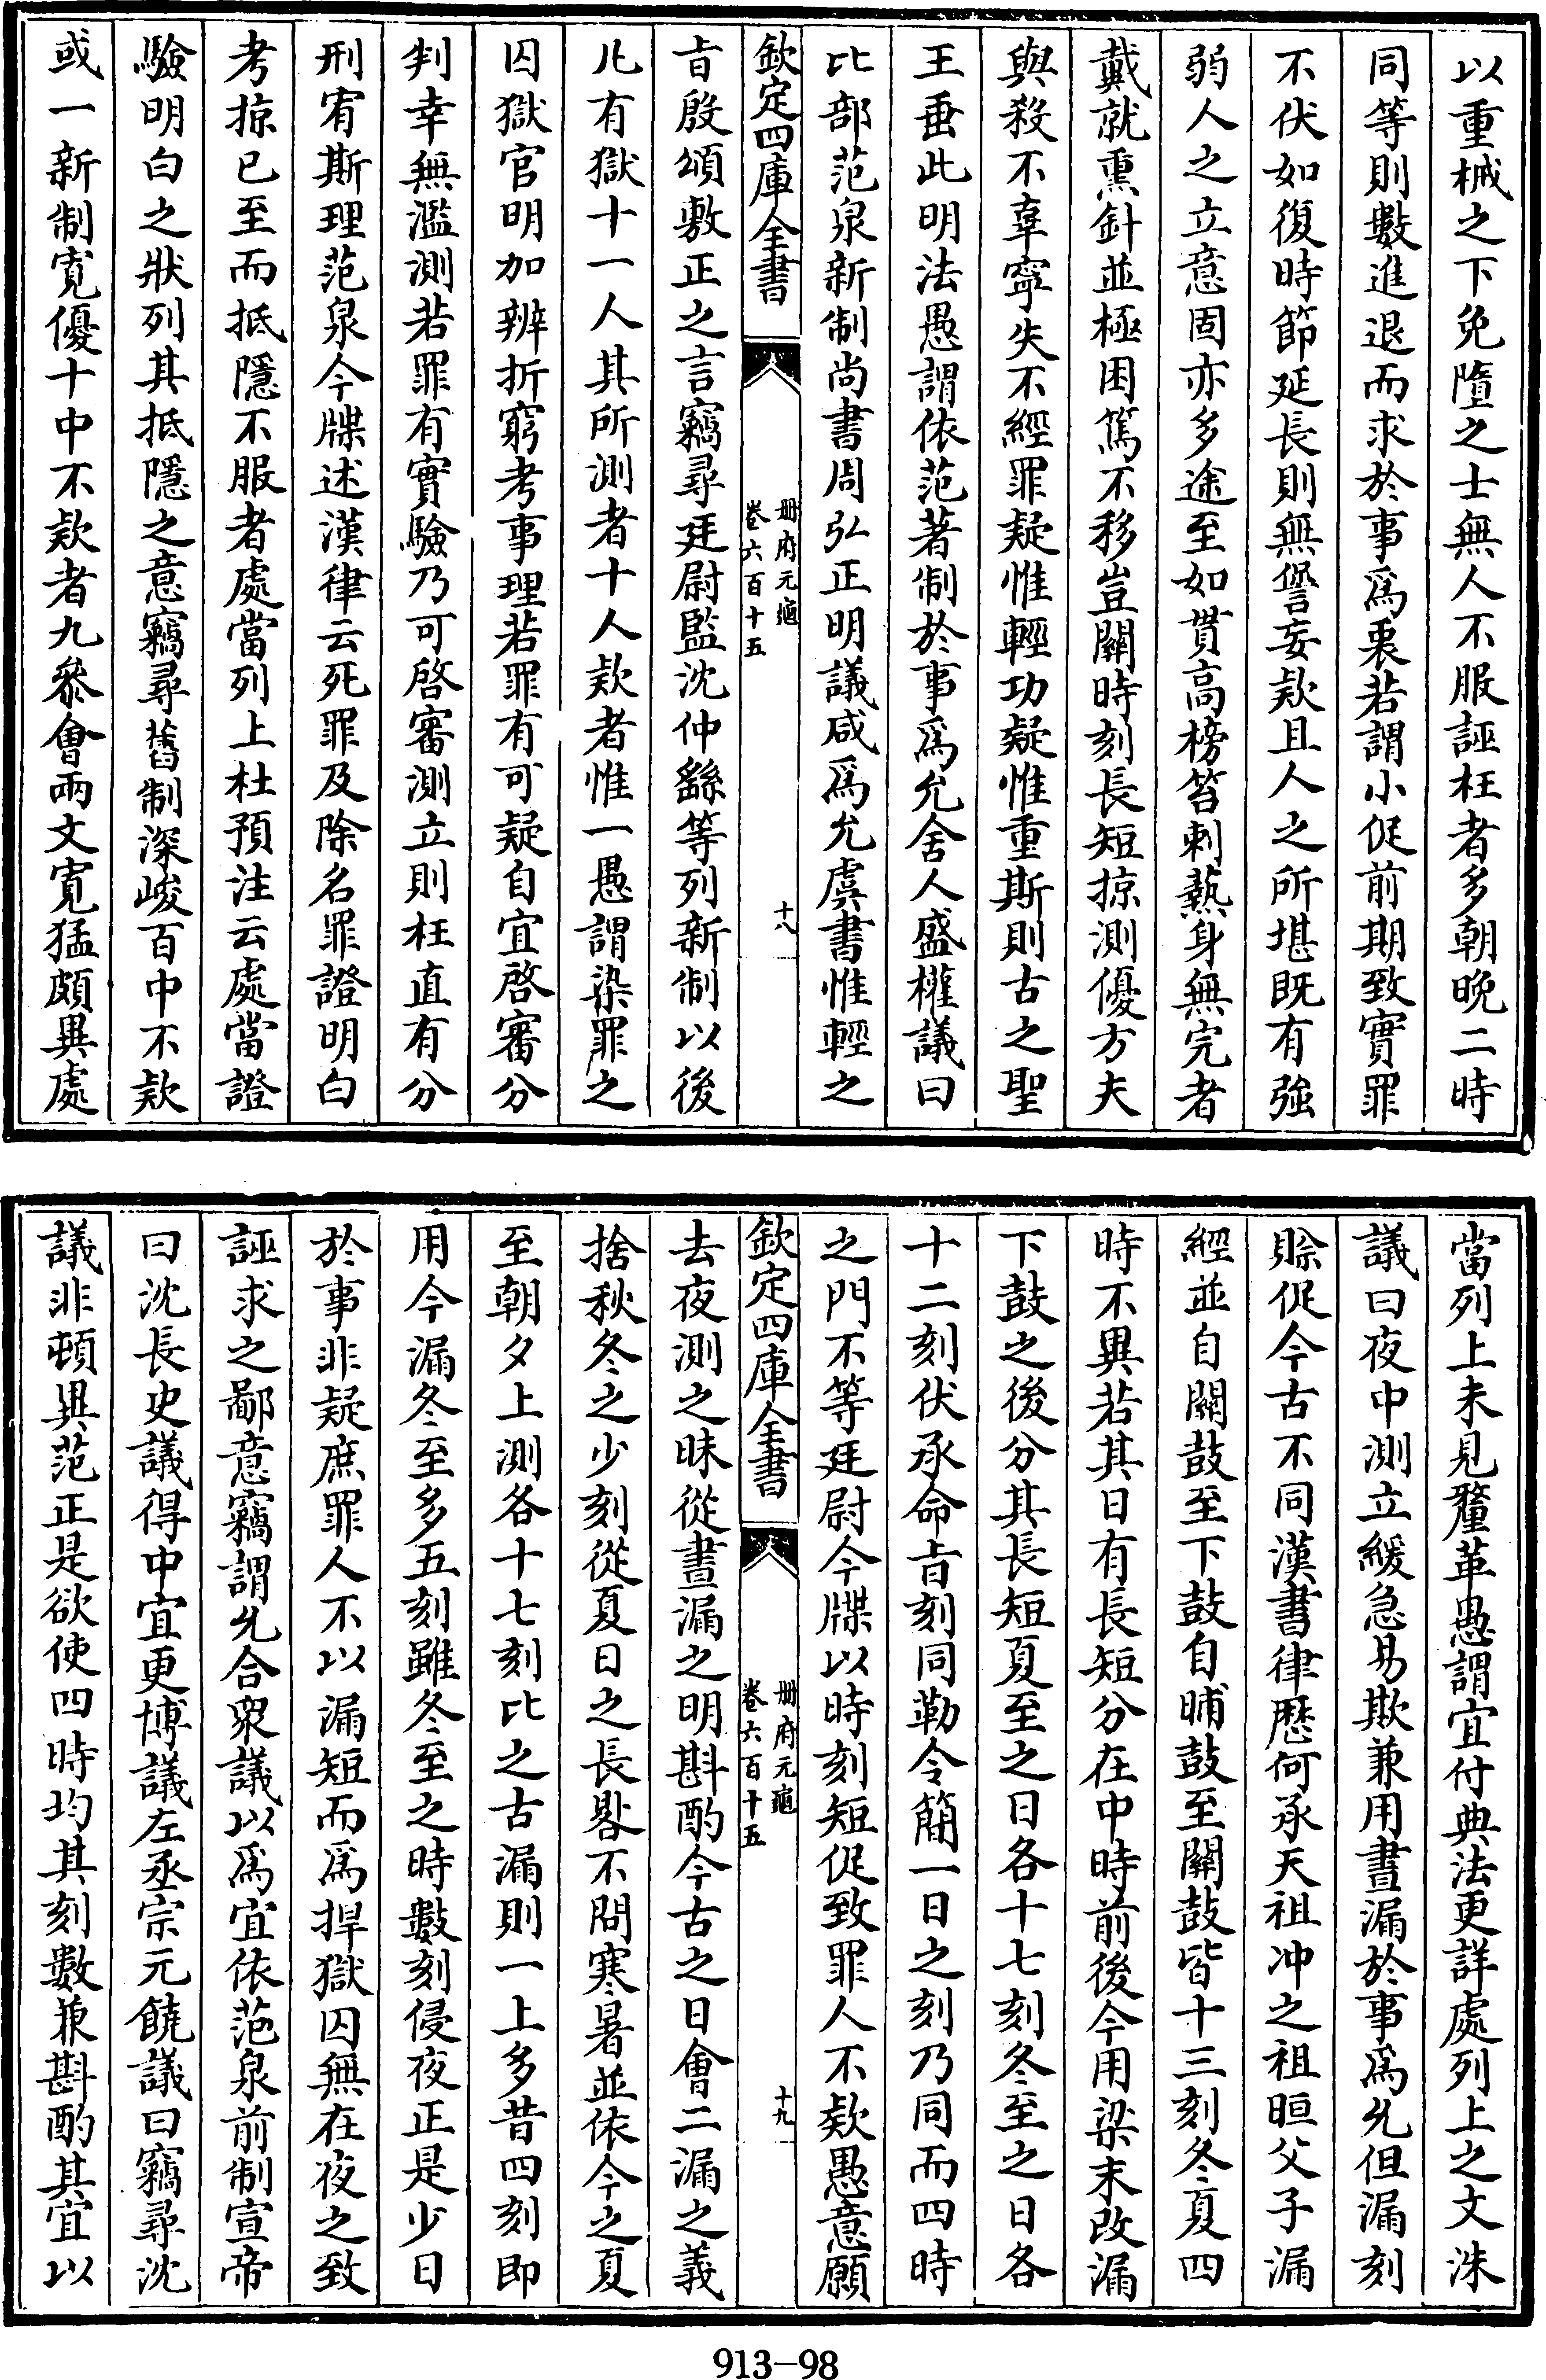 以重械之下免墮之士無人不服誣枉者多朝晚二時
同等則數進退而求於事爲衷若謂小促前期致實罪
不伏如復時節延長則無諐妄欵且人之所堪既有強
弱人之立意固亦多途至如貫高榜笞刺爇身無完者
戴就熏針並極困篤不移豈關時刻長短掠測優方夫
與殺不辜寧失不經罪疑惟輕功疑惟重斯則古之聖
王垂此明法愚謂依范著制於事爲允舍人盛權議曰
比部范泉新制尚書周弘正明議咸爲允虞書惟輕之
欽定四庫全書
册府元龜
卷六百十五
十八
㫖殷頌敷正之言竊尋廷尉監沈仲繇等列新制以後
凡有獄十一人其所測者十人欵者惟一愚謂染罪之
囚獄官明加辨折窮考事理若罪有可疑自宜啓審分
判幸無濫測若罪有實驗乃可啓審測立則枉直有分
刑宥斯理范泉今牒述漢律云死罪及除名罪證明白
考掠已至而抵隱不服者處當列上杜預注云處當證
驗明白之狀列其抵隱之意竊尋舊制深峻百中不欵
或一新制寛優十中不欵者九參會兩文寛猛頗異處
當列上未見釐革愚謂宜付典法更詳處列上之文洙
議曰夜中測立緩急易欺兼用晝漏於事爲允但漏刻
賖促今古不同漢書律歴何承天祖冲之祖暅父子漏
經並自關鼓至下鼓自晡鼓至關鼓皆十三刻冬夏四
時不異若其日有長短分在中時前後今用梁末改漏
下鼓之後分其長短夏至之日各十七刻冬至之日各
十二刻伏承命㫖刻同勒令簡一日之刻乃同而四時
之門不等廷尉今牒以時刻短促致罪人不欵愚意願
欽定四庫全書
册府元龜
卷六百十五
十九
去夜測之昧從晝漏之明斟酌今古之日會二漏之義
捨秋冬之少刻從夏日之長晷不問寒暑並依今之夏
至朝夕上測各十七刻比之古漏則一上多昔四刻即
用今漏冬至多五刻雖冬至之時數刻侵夜正是少日
於事非疑庶罪人不以漏短而爲捍獄囚無在夜之致
誣求之鄙意竊謂允合衆議以爲宜依范泉前制宣帝
曰沈長史議得中宜更博議左丞宗元饒議曰竊尋沈
議非頓異范正是欲使四時均其刻數兼斟酌其宜以
913—98